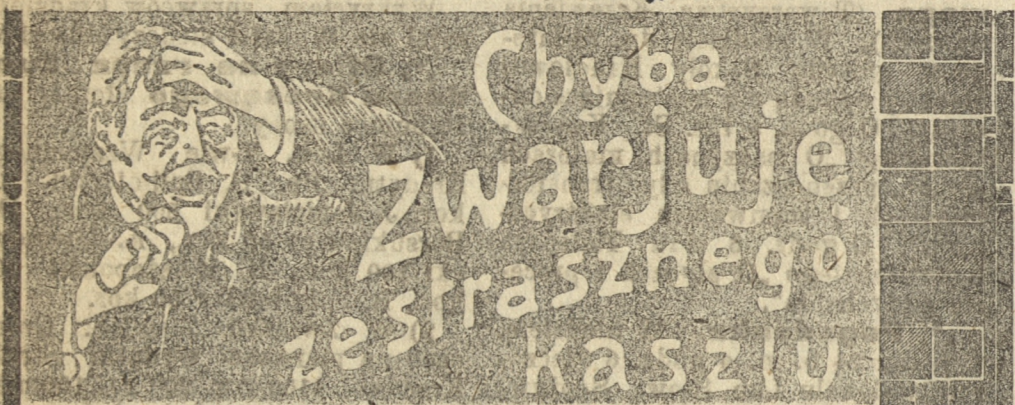 Chyba
zwarjuję
ze strasznego
kaszlu